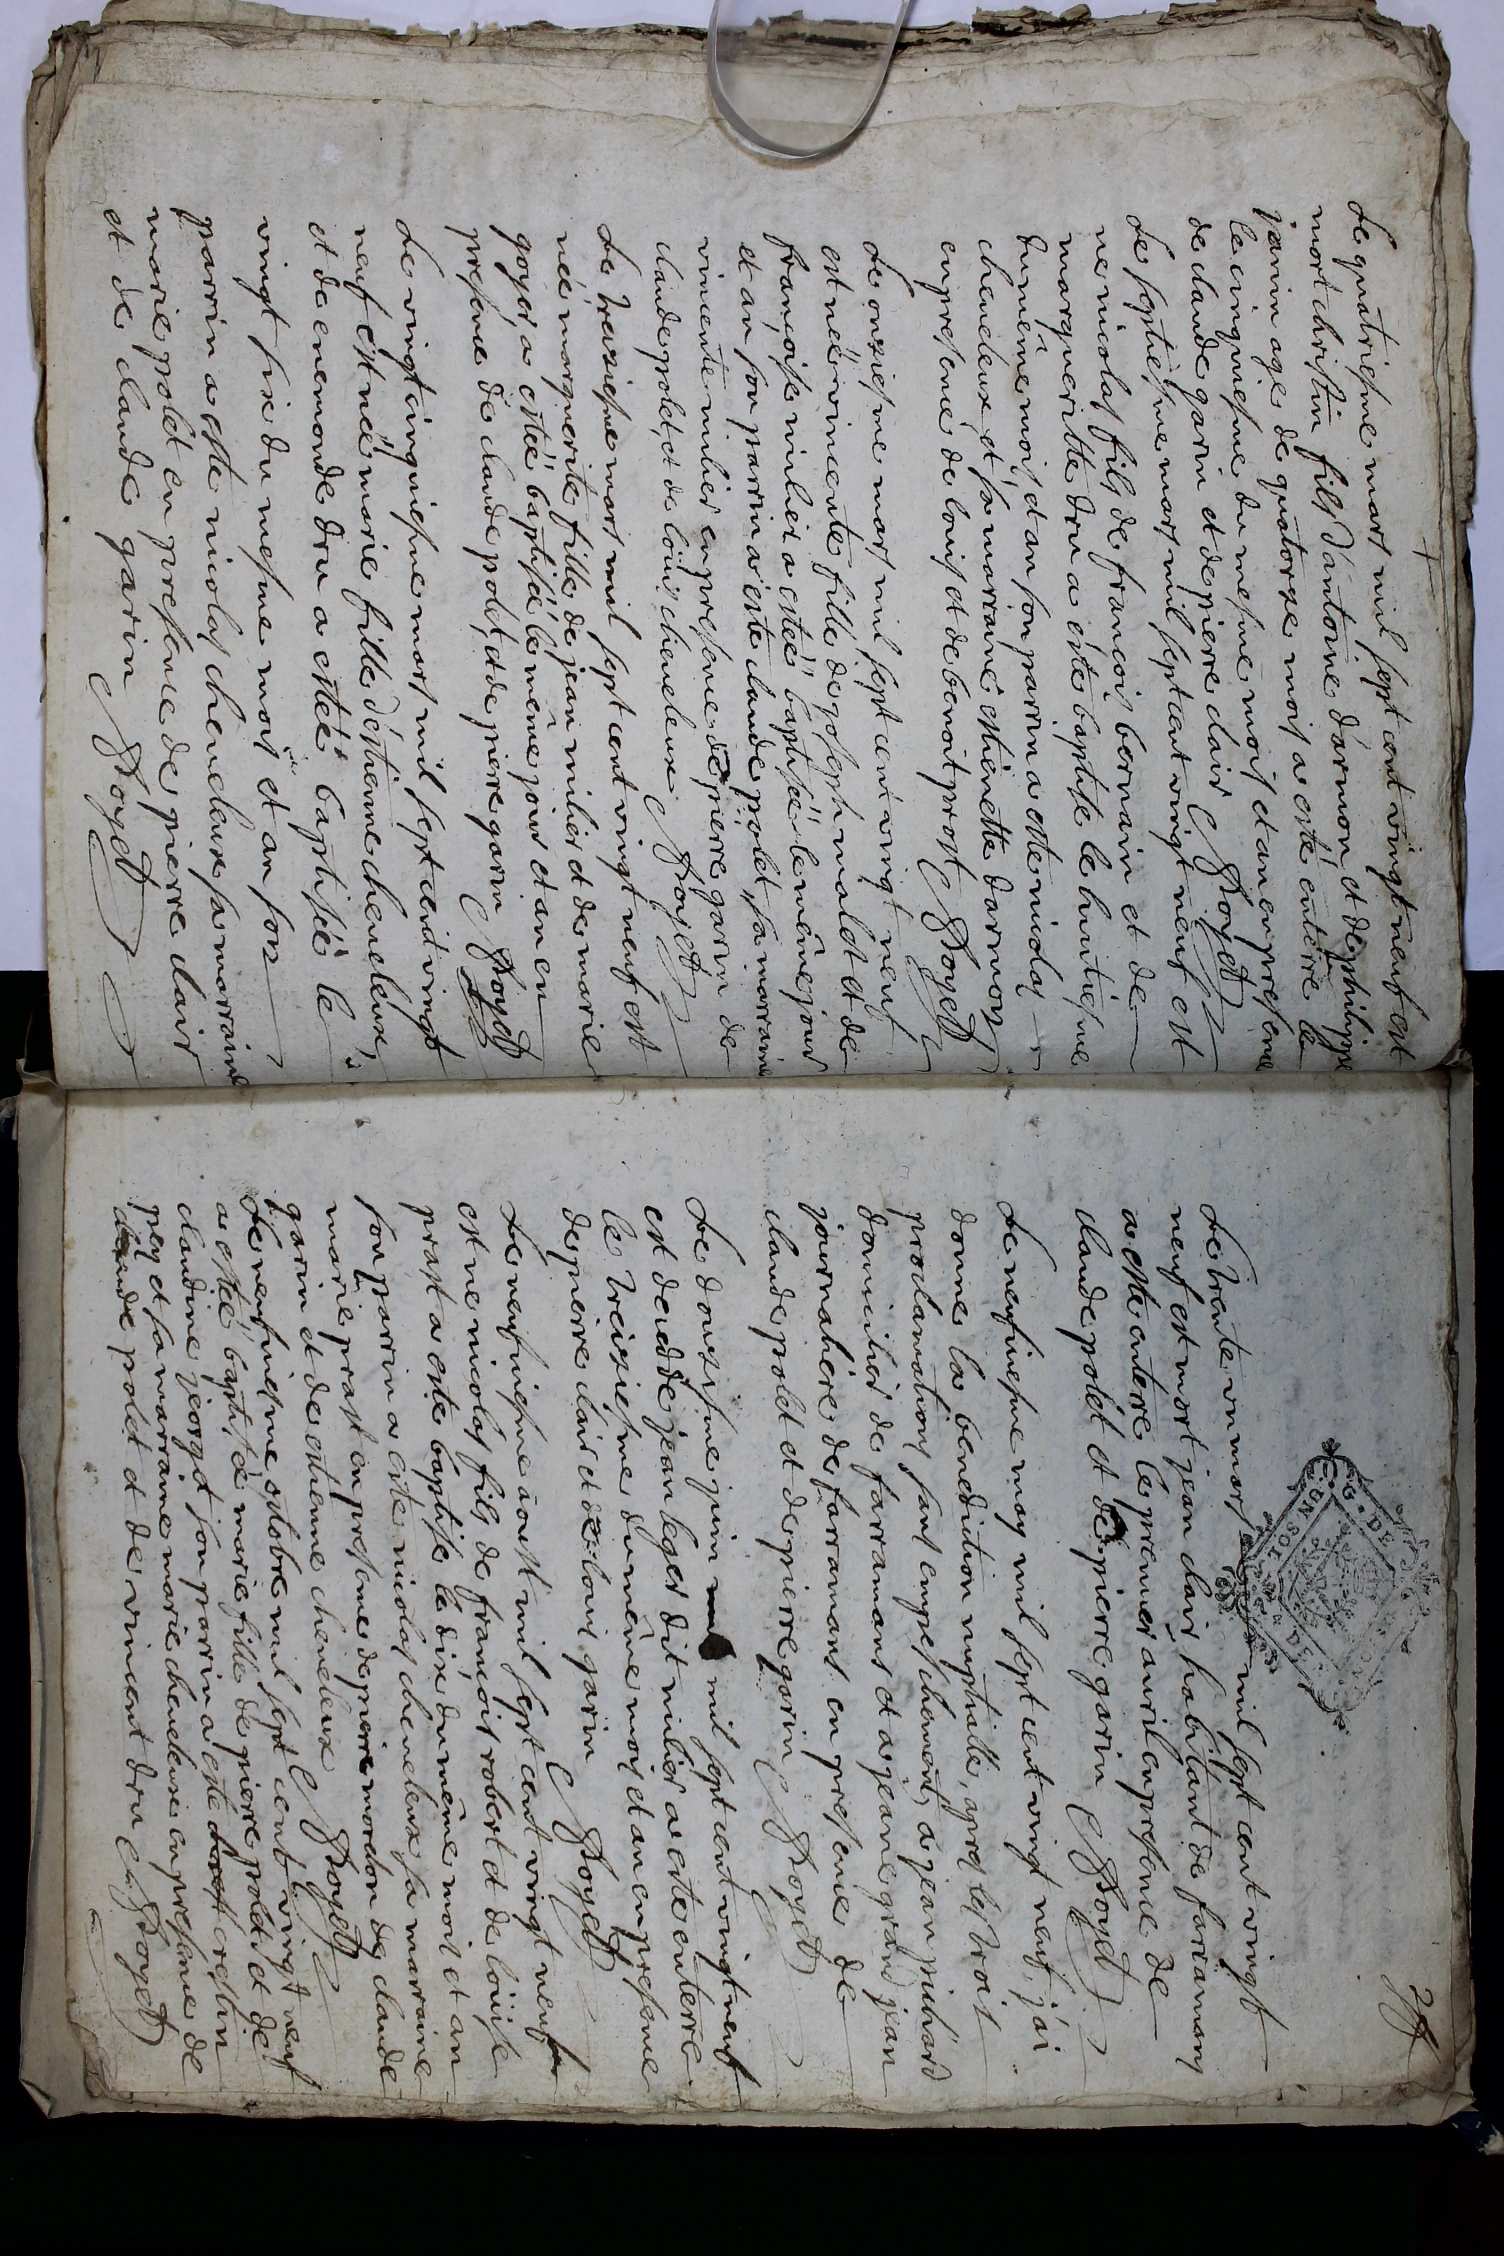 Le quatriesme mars mil sept cent vingt neuf est
mort christin fils d'antoine darmon et de philippe
janin age de quatorze mois a esté enterre le
le cinquiesme du mesme mois et an en presence
de claude garin et de pierre clair
Le septiesme mars mil sept cent vingt neuf est
ne nicolas fils de francois bernain et de
marguerite dru a esté baptise le huitiesme
du même mois et an son parin a este nicolas
cheneleux et sa marraine estienette darmon
en presence de louis et de benoit prost Boyet
Le onziesme mars mil sept cent vingt neuf
est née vincente fille de joseph malet et de
françoise milier a estée baptisée le même jour
et an son parrin a este claude polet sa marraine
vincente milier en presence de pierre garin de
claude polet et de loüis cheneleux Boyet
Le treiziesme mars mil sept cent vingt neuf est
née marguerite fille de jean milier et de marie
goyet a estée baptisée le même jour et an en
presence de claude polet et de pierre garin Boyet
Le vingt cinquiesme mars mil sept cent vingt
neuf est née marie fille d'estienne cheneleux
et de enemonde dru a estée baptisée le
vingt six du mesme mois et an son
parrin a este nicolas cheneleux sa marraine
marie polet en presence de pierre clair
et de claude garin Boyet
Le trente un mars mil sept cent vingt
neuf est mort jean clair habitant de farramans
a este enterre le premier avril en presence de
claude polet et de pierre garin Boyet
Le neufviesme may mil sept cent vingt neuf j'ai
donne la benediction nuptialle, apres les trois
proclamations sans empeschement, a jean pichard
domicilié de farramans et a jeanne grand jean
journaliere de farramans en presence de
claude polet et de pierre garin Boyet
Le douzisme juin mil sept cent vingt neuf
est decedde jean leger dit milier a este enterre
le treiziesme du même mois et an en presence
de pierre clair et de louis garin Boyet
Le neufviesme aoust mil sept cent vingt neuf
est ne nicolas fils de françois robert et de loüise
prast a este baptise le dix du même mois et an
son parin a este nicolas cheneleux sa maraine
marie prast en presence de pierre moredon de claude
garin et de estienne cheneleux Boyet
Le neufviesme octobre mil sept cent vingt neuf
a estée baptisée marie fille de pierre polet et de
claudine jeorget son parin a este restin
pey et sa marraine marie cheneleux en presence de
claude polet et de vincent dru Boyet